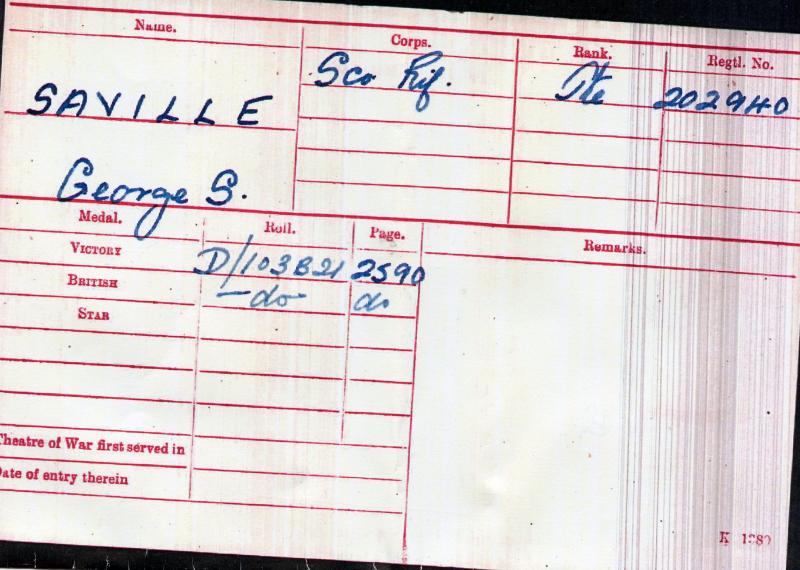 Name. Corps. Rank. Regtl. No.
Sco Rif. Pte 202940
SAVILLE
George S.
Medal. Roll. Page. Remarks.
VICTORY D/103B21 2590
BRITISH —do— do
STAR
Theatre of War first served in
Date of entry therein
K 1380